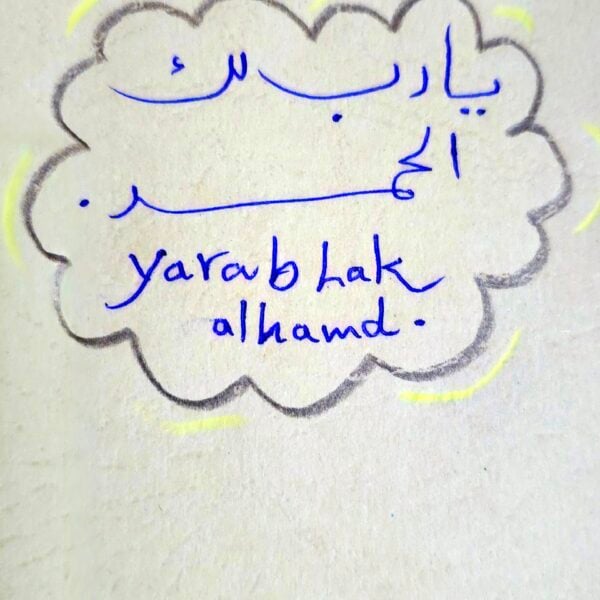 يارب لك
الحمد.
yarab Lak
alhamd.